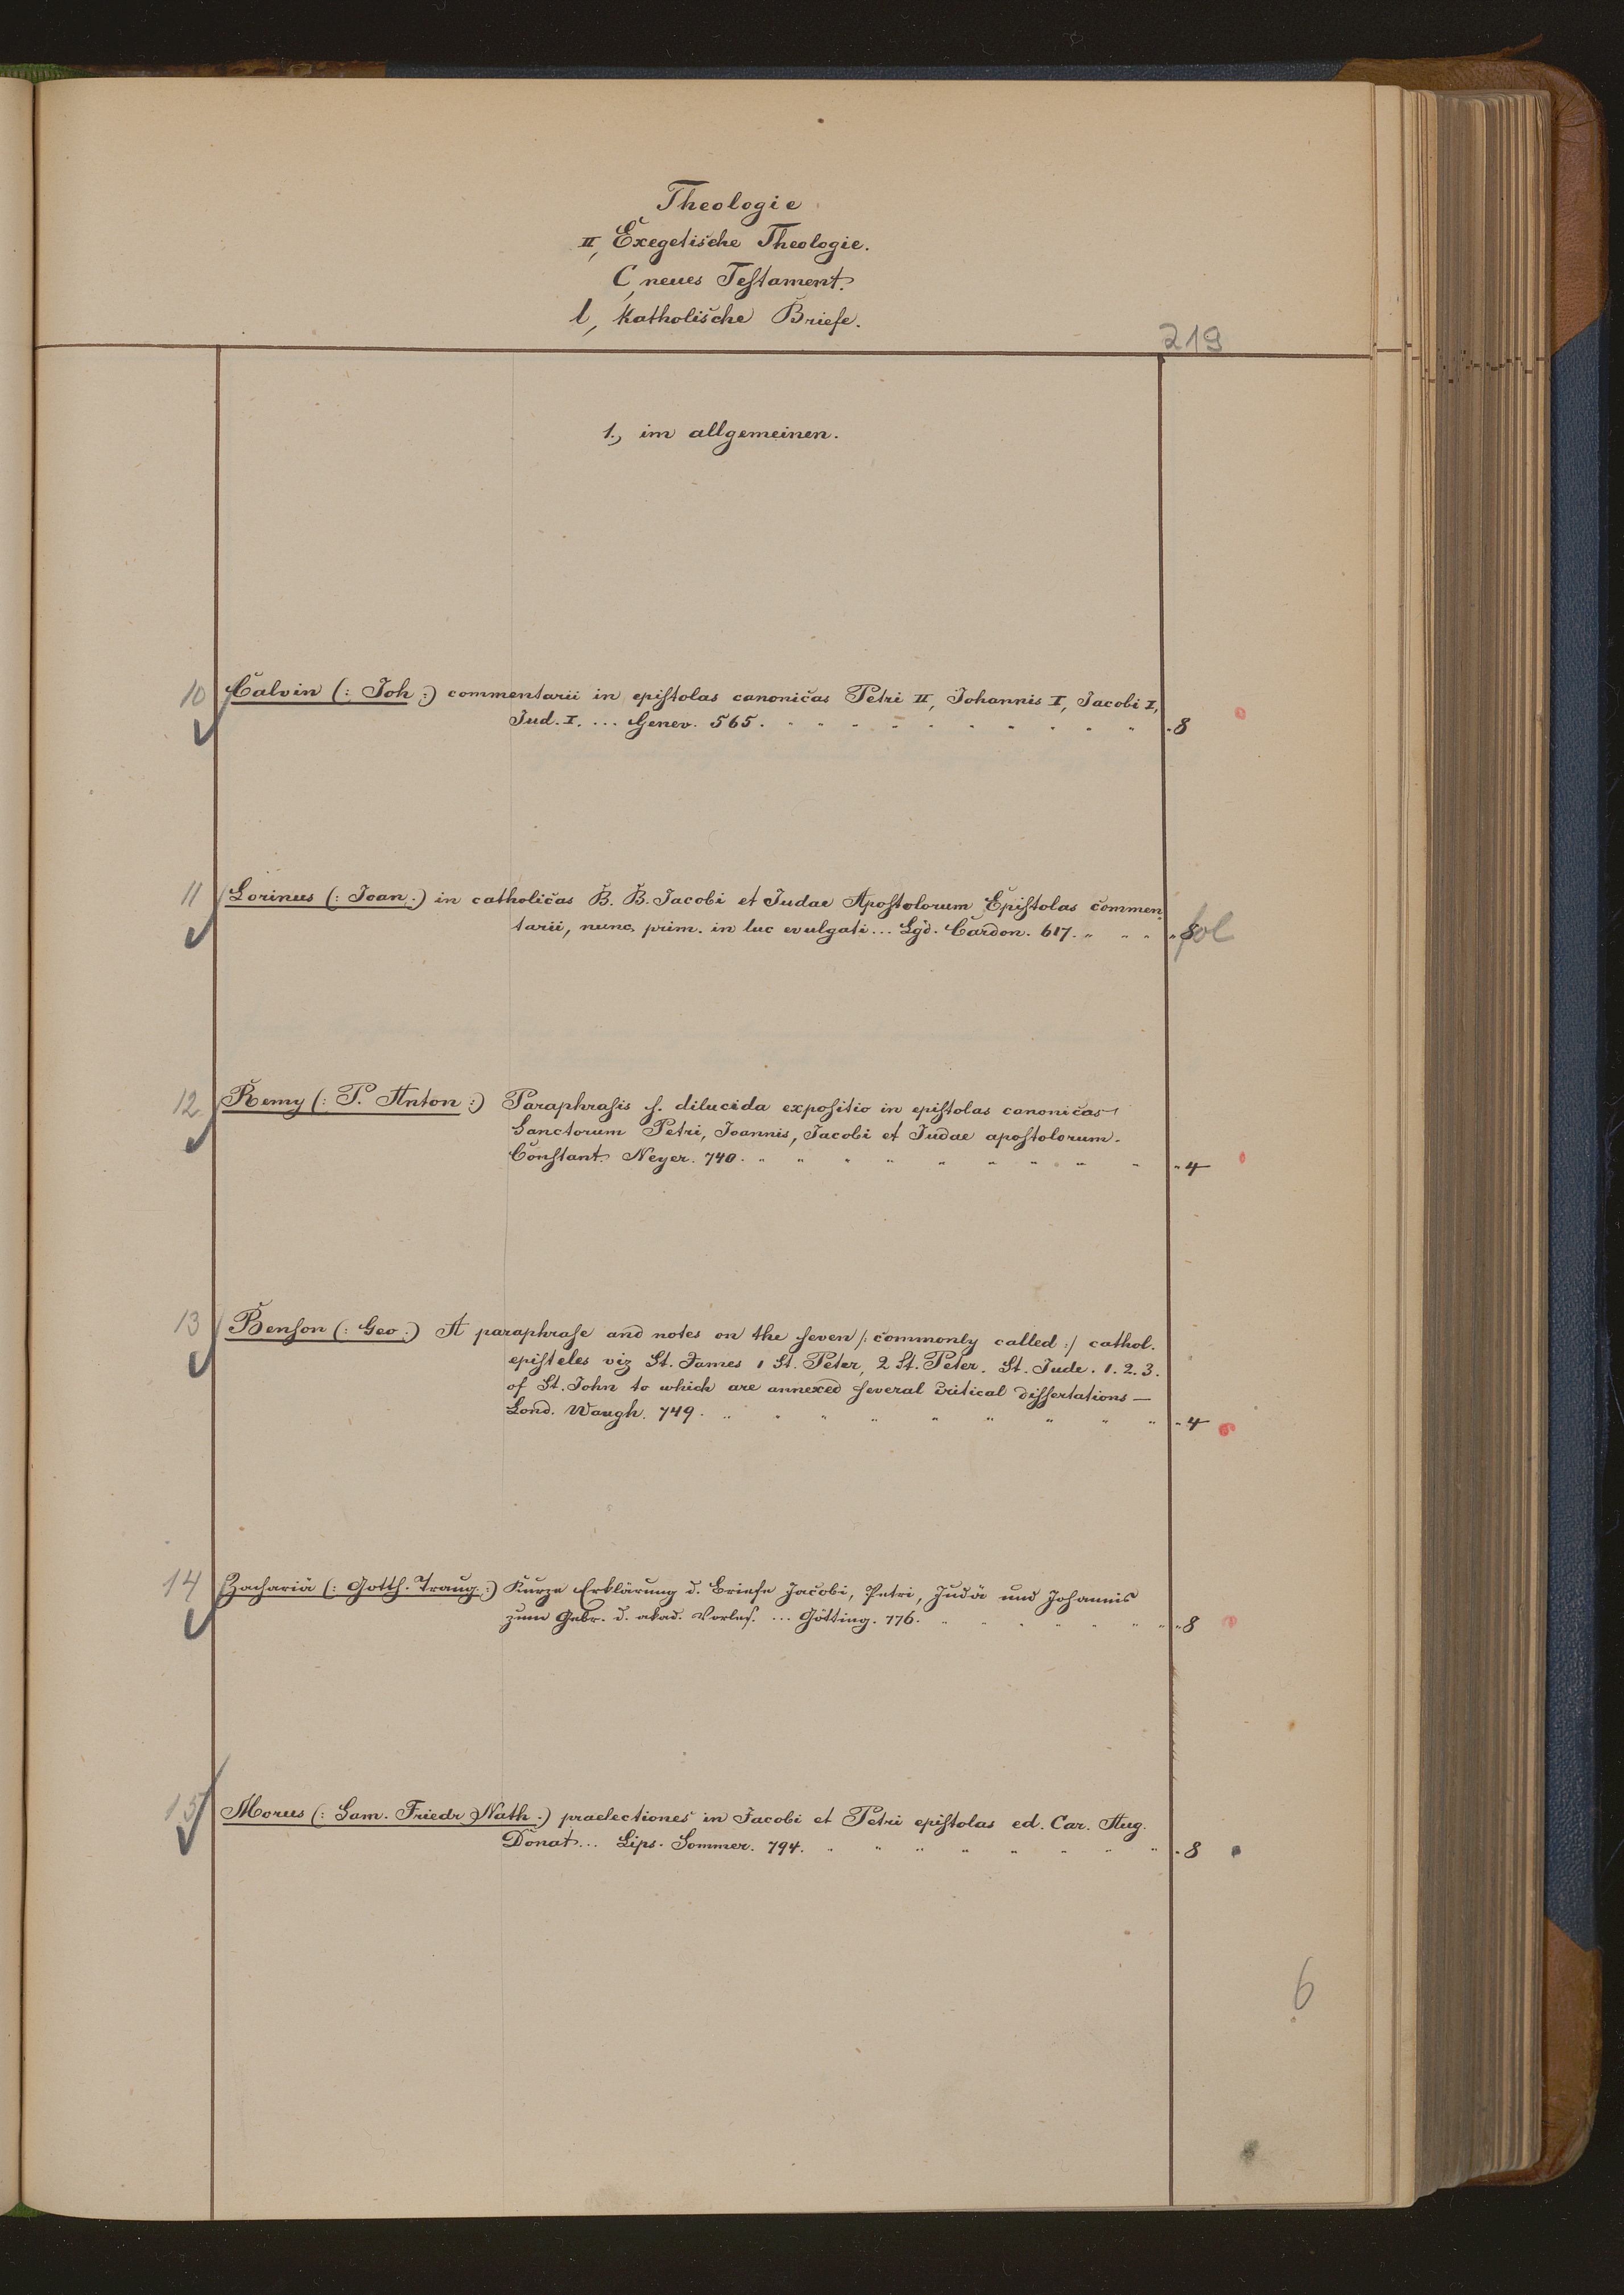 Theologie
II, Exegetische Theologie.
C, neues Testament.
l, Katholische Briefe.
219
1., im allgemeinen.
10 Calvin (: Joh :) commentarii in epistolas canonicas Petri II, Johannis I, Jacobi I,
Jud. I. ... Genev. 565. " 8
11 Lorinus (: Joan :) in catholicas B. B. Jacobi et Judae Apostolorum Epistolas commen
tarii, nunc prim. in luc evulgati ... Lgd. Cardon. 617. " fol
12 Remy (: P. Anton :) Paraphrasis s. dilucida expositio in epistolas canonicas
Sanctorum Petri, Joannis, Jacobi et Judae apostolorum.
Constant. Neyer. 740. " 4
13 Benson (: Geo :) A paraphrase and notes on the seven /: commonly called :/ cathol.
episteles viz St. James 1 St. Peter, 2 St. Peter. St. Jude. 1. 2. 3.
of St. John to which are annexed several critical dissertations —
Lond. Waugh. 749. " 4
14 Zachariä (: Gotth. Traug. :) Kurze Erklärung d. Briefe Jacobi, Petri, Judä und Johannis
zum Gebr. d. akad. Vorles. ... Götting. 776. " 8
15 Morus (: Sam. Friedr Nath :) praelectiones in Jacobi et Petri epistolas ed. Car. Aug.
Donat ... Lips. Sommer. 794. " 8
6